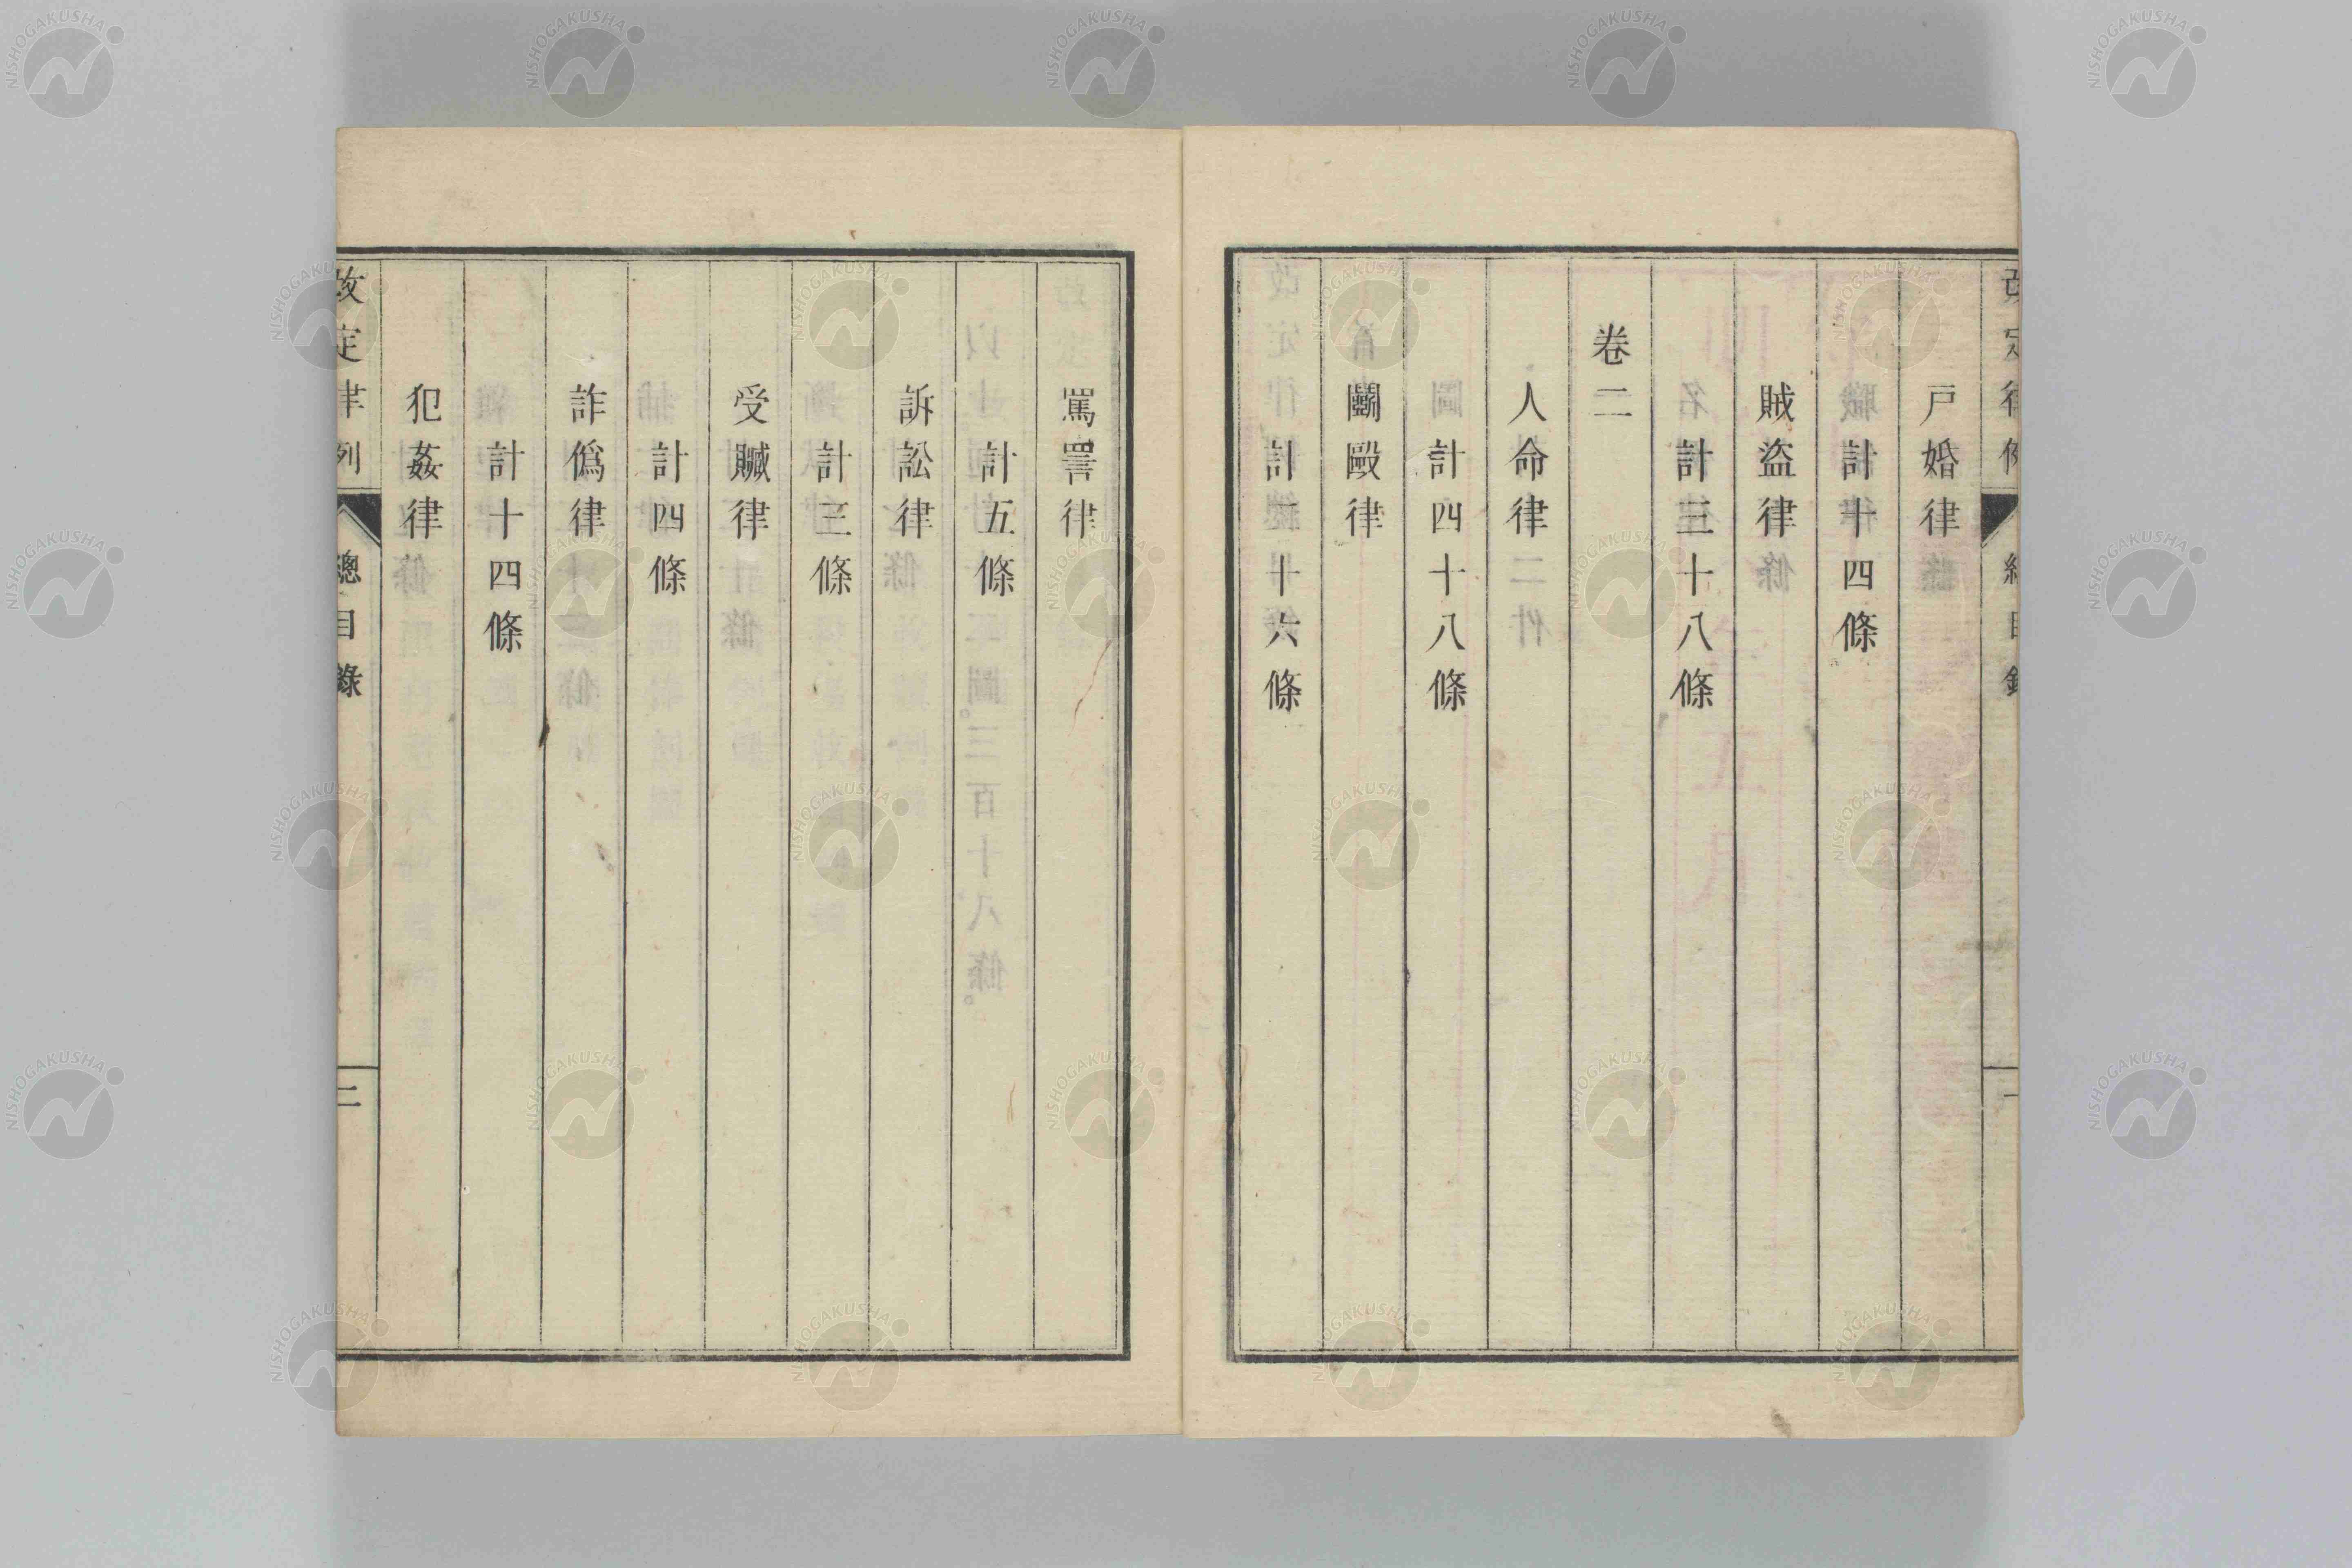 改定律例 總目錄 一
戸婚律
計十四條
賊盗律
計三十八條
卷二
人命律
計四十八條
鬭毆律
計二十六條
罵詈律
計五條
訴訟律
計三條
受贓律
計四條
詐僞律
計十四條
犯姦律
改定律例 總目錄 二